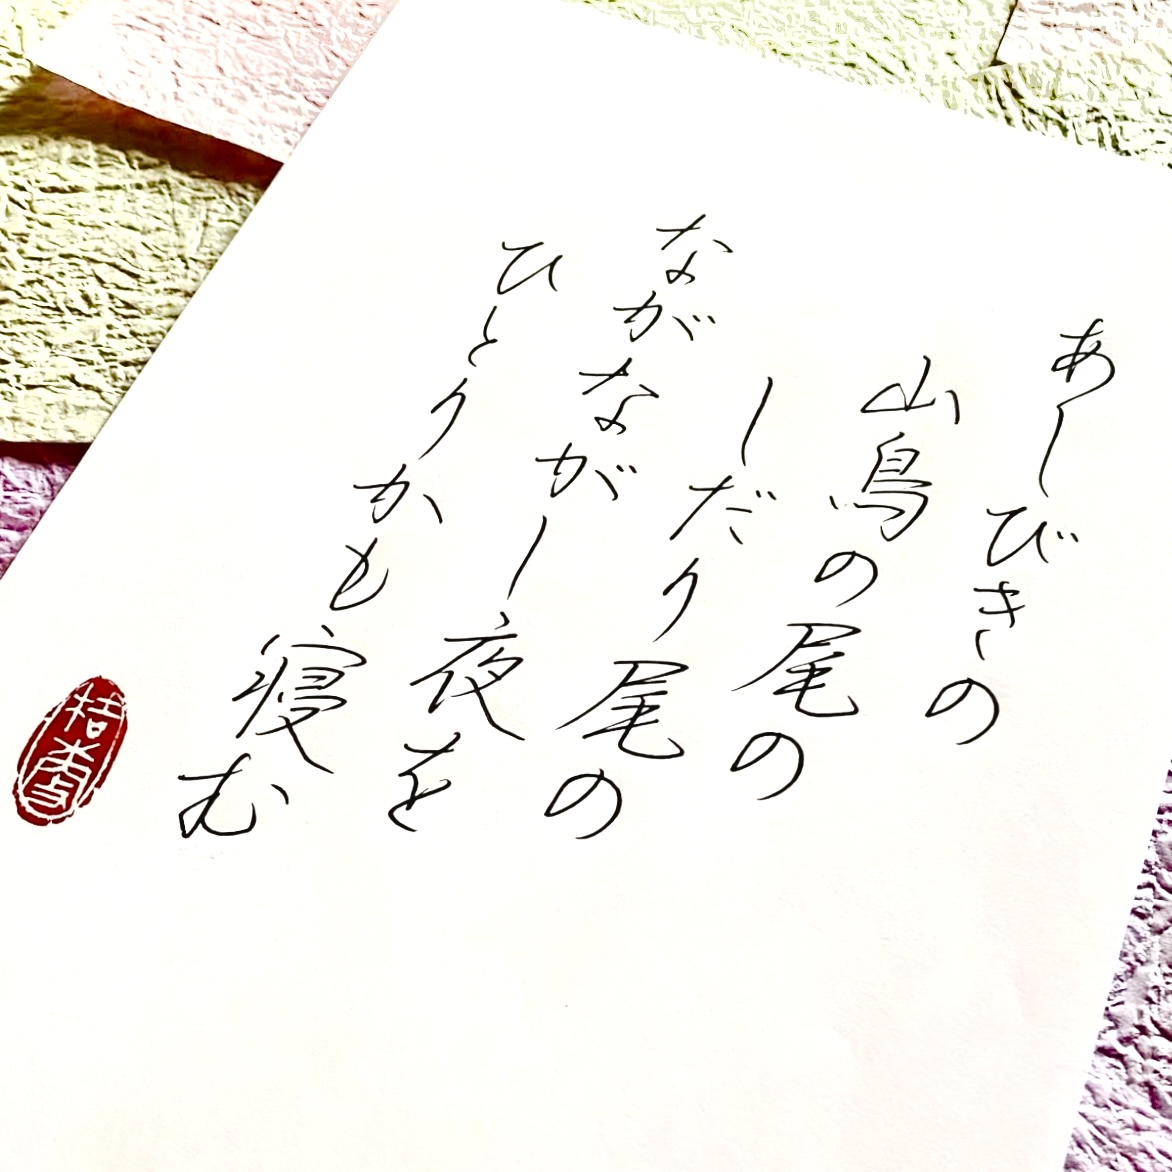 あしびきの
山鳥の尾の
しだり尾の
ながながし夜を
ひとりかも寝む